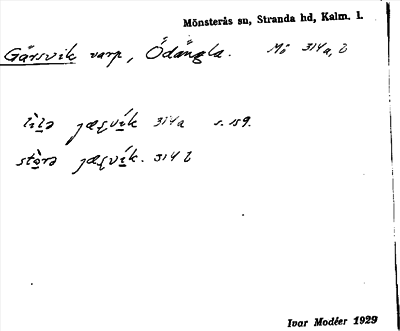 Mönsterås sn, Stranda hd, Kalm. l.
Gårsvik varp, Ödängla. Mö 314a, b
lìlə jæʂvík 314a s. 159.
stòrə jæʂvík. 314 b
Ivar Modéer 1929